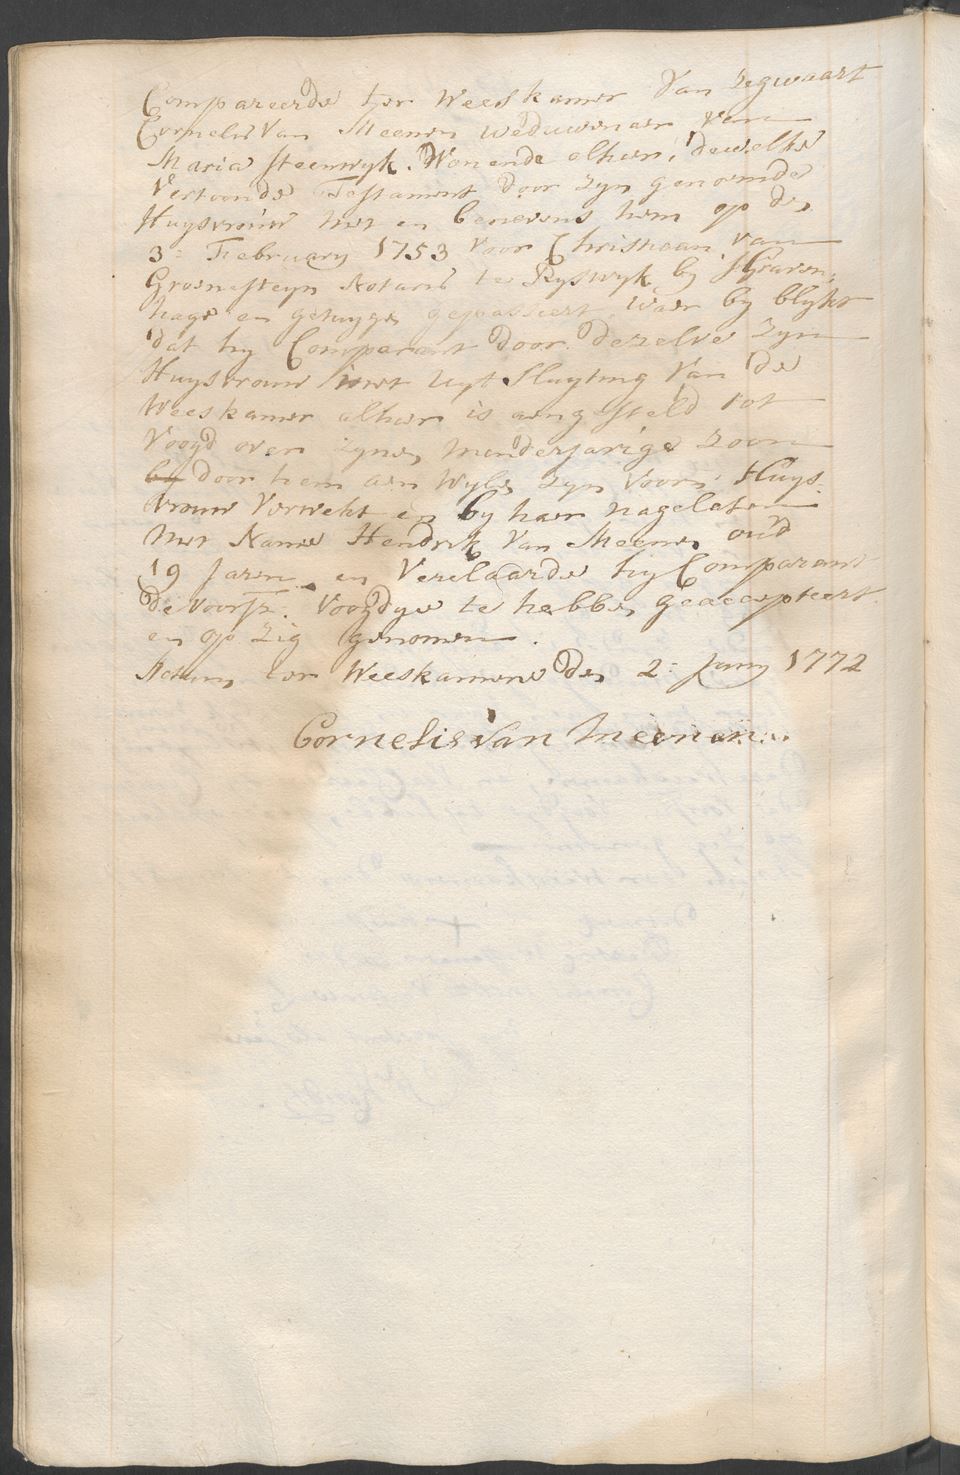 Compareerde ter Weeskamer Van Zegwaart
Cornelis Van Meenen Weduwenaer van
Maria Steenwyk. Wonende alhier, dewelke
Vertoonde Testament door zyn genoemde
Huysvrouw met en benevens hem op den
3e February 1753 Voor Christiaan van
Groenesteyn Notaris te Ryswyk by sGraven,
hage en getuygen gepasseert, waer by blykt
dat hy Comparant door dezelve zyn
Huysvrouw met Uyt Sluyting Van de
Weeskamer alhier is aengesteld tot
Voogd over zynen minderjarige zoon
by door hem aen Wylen zyn Voorn: Huys,
vrouw Verwekt en by haer nagelaten
met Name Hendrik Van Meenen oud
19 Jaren en Verclaarde hy Comparant
de voorsz. Voogdye te hebben geaccepteert
en op zig genomen.
Actum ter Weeskamere den 2e Juny 1772
Cornelis Van Meenen